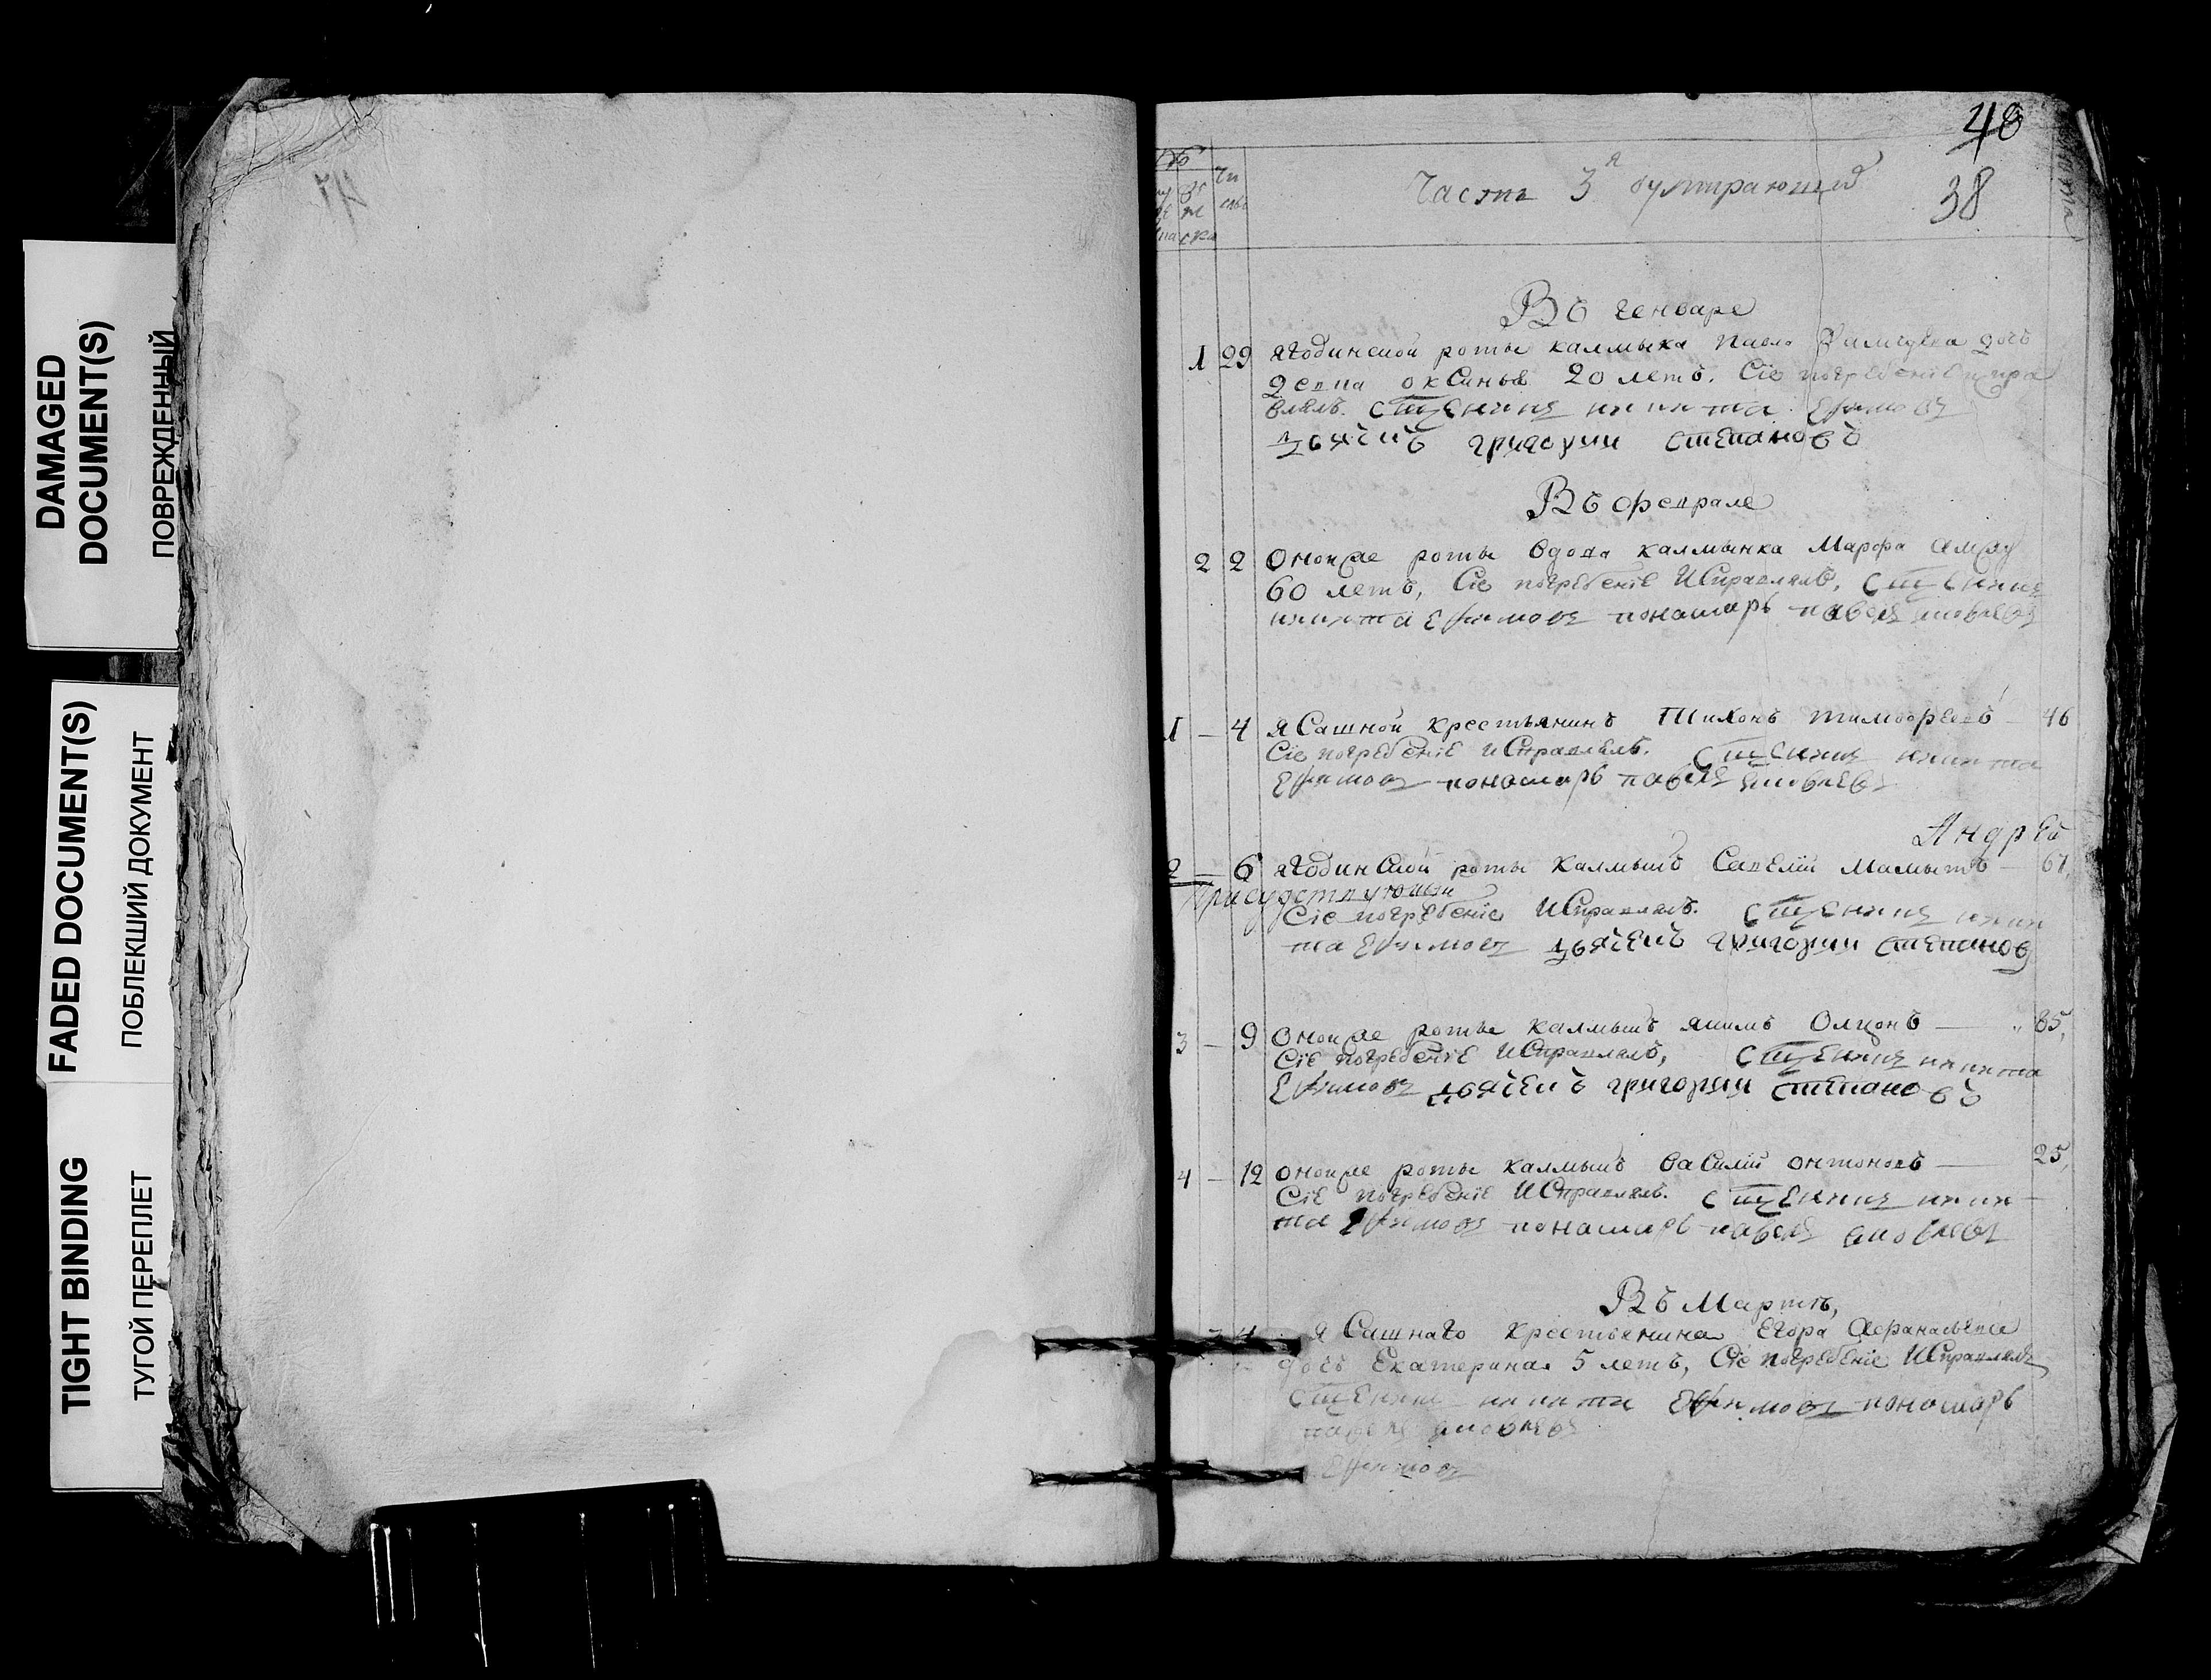 DAMAGED
DOCUMENT(S)
ПОВРЕЖДЕННЫЙ
FADED DOCUMENT(S)
ПОБЛЕКШИЙ ДОКУМЕНТ
TIGHT BINDING
ТУГОЙ ПЕРЕПЛЕТ
40
38
Часть 3я оумирающид
Въ генваре
1 29 ягодинской роты калмыка дочь
девка оксинья 20 летъ. Сіе погребеніе испра
влялъ. священникъ никита Ефимовъ
дьячекъ григорий степановъ
Въ феврале
2 2 оной же роты вдова калмычка Марфа
60 летъ, Сіе погребеніе Исправлялъ, священникъ
никита Ефимовъ пономарь павелъ яковлевъ
1 — 4 ясашной крестьянинъ Тихонъ тимофеевъ — 46
Сіе погребеніе исправлялъ. священникъ никита
Ефимовъ пономарь павелъ яковлевъ
Андрей
2 — 6 ягодинской роты калмыкъ Савелій — 61,
Сіе погребеніе Исправлялъ. священникъ ники
та Ефимовъ дьячекъ григорий степановъ
3 — 9 оной же роты калмыкъ якимъ — 85,
Сіе погребеніе Исправлялъ, священникъ никита
Ефимовъ дьячекъ григорий степановъ
4 — 12 оной же роты калмыкъ василій онтоновъ — 25,
Сіе погребеніе Исправлялъ. священникъ ники
та Ефимовъ пономарь павелъ яковлевъ
Въ Мартѣ,
4 ясашнаго крестьянина Егора Афанасьева
дочь Екатерина 5 летъ, Сіе погребеніе Исправлялъ
священникъ никита Ефимовъ пономарь
павелъ яковлевъ
Ефимовъ